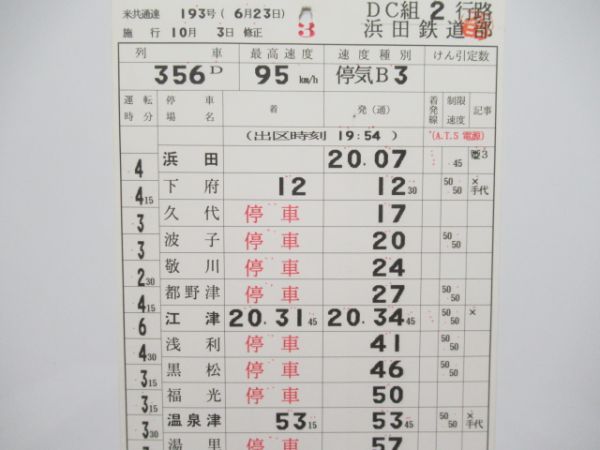 米共通達 193号(6月23日) DC組 2 行路
施行 10月 3日 修正 3 浜田鉄道部
列車 最高速度 速度種別 けん引定数
356D 95 km/h 停気B3
運転時分 停車場名 着 発(通) 着発線 制限速度 記事
(出区時刻 19:54) (A.T.S電源)
浜田 20.07 45 3
4
下府 12 12 30 50 50 × 手代
4 15
久代 停車 17
3
波子 停車 20 50 50
3
敬川 停車 24
2 30
都野津 停車 27 50 50
4 15
江津 20.31 45 20.34 45 50 50 ×
6
浅利 停車 41 50 50
4 30
黒松 停車 46 50 50
3 15
福光 停車 50
3 15
温泉津 53 15 53 45 50 50 × 手代
3 30
湯里 停車 57